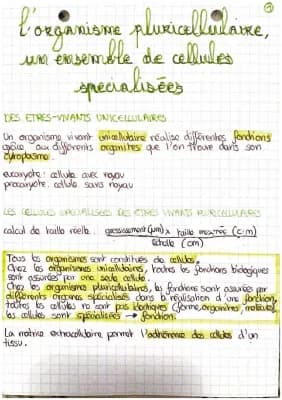 l'organisme pluricellulaire,
un ensemble de cellules
spécialisées
DES ETRES-VIVANTS UNICELLULAIRES
Un organisme vivant unicellulaire réalise différentes fonctions
grâce aux différents organites que l'on trouve dans son
cytoplasme.
eucaryote: cellule avec noyau
procaryote: cellule sans noyau
LES CELLULES SPECIALISEES DES ETRES VIVANTS PLURICELLULAIRES
calcul de taille réelle : (µm) x taille mesurée (cm)
échelle (cm)
Tous les organismes sont constitués de cellules.
Chez les organismes unicellulaires, toutes les fonctions biologiques
sont assurées par une seule cellule.
Chez les organismes pluricellulaires, les fonctions sont assurées par
différents organes spécialisés dans la réalisation d'une fonction,
toutes les cellules ne sont pas identiques (forme, organites, molécules)
les cellules sont spécialisées → fonction.
La matrice extracellulaire permet l'adhérence des cellules d'un
tissu.